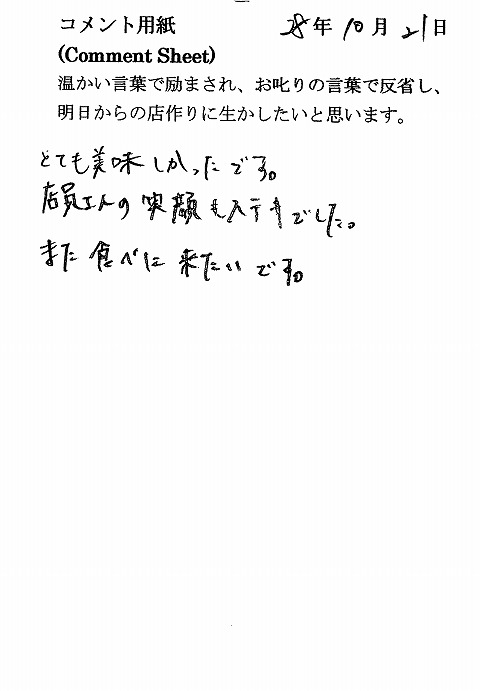 コメント用紙 28年10月21日
(Comment Sheet)
温かい言葉で励まされ、お叱りの言葉で反省し、
明日からの店作りに生かしたいと思います。
とても美味しかったです。
店員さんの笑顔もステキでした。
また食べに来たいです。